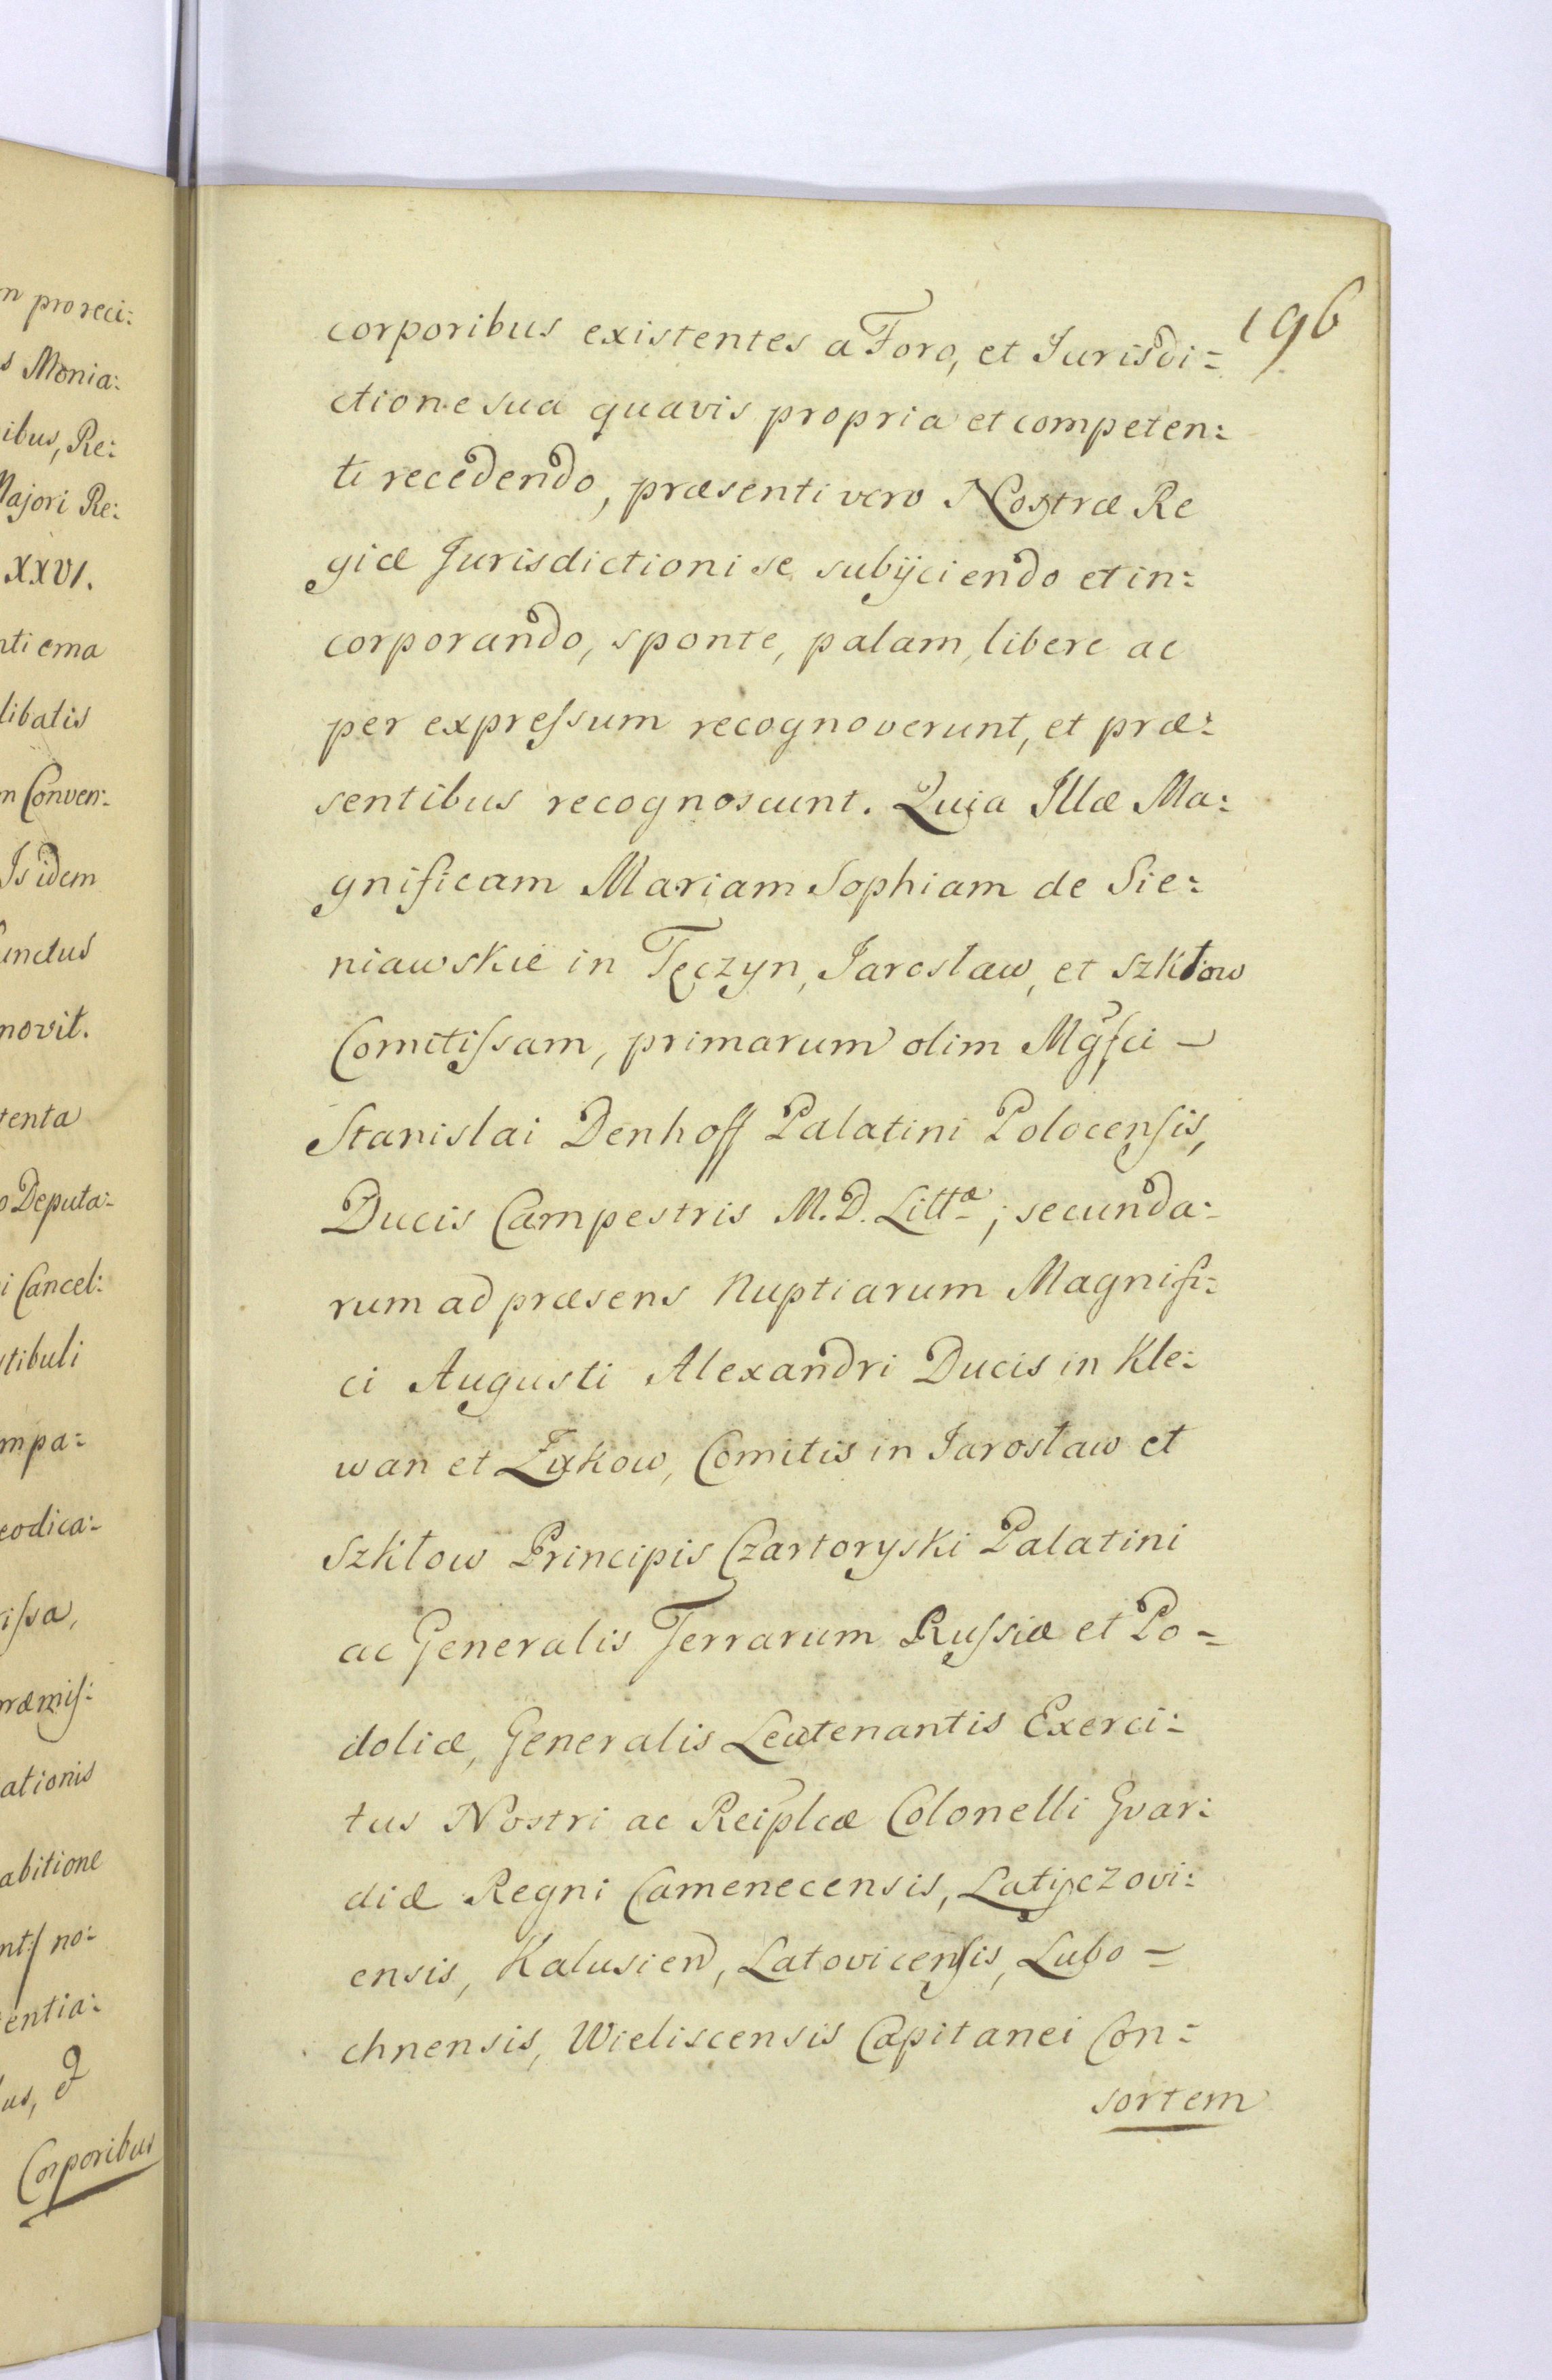 n pro reci:
s Monia:
ibus, Re:
Majori Re:
XXVI.
nti ema
libatis
m Conven:
Is idem
unctus
novit.
tenta
o Deputa:
i Cancel:
tibuli
mpa:
eodica:
issa,
ræmis:
ationis
abitione
no:
entia:
us, &
Corporibus
196
corporibus existentes a Foro, et Jurisdi=
ctione sua quavis propria et competen:
ti recedendo, præsenti vero Nostræ Re
giæ Jurisdictioni se subijciendo et in:
corporando, sponte, palam, libere ac
per expressum recognoverunt, et præ:
sentibus recognoscunt. Quia Illæ Ma:
gnificam Mariam Sophiam de Sie:
niawskie in Tęczyn, Jarosław, et Szkłow
Comitissam, primarum olim Mgfci –
Stanislai Denhoff Palatini Polocensis,
Ducis Campestris M.D. Littæ; secunda:
rum ad præsens Nuptiarum Magnifi:
ci Augusti Alexandri Ducis in Kle:
wan et Żukow, Comitis in Jarosław et
Szkłow Principis Czartoryski Palatini
ac Generalis Terrarum Russiæ et Po=
doliæ, Generalis Leutenantis Exerci:
tus Nostri ac Reiplcæ Colonelli Gvar:
diæ Regni Camenecensis, Latyczovi:
ensis, Kalusien, Latovicensis, Lubo=
chnensis, Wieliscensis Capitanei Con=
sortem